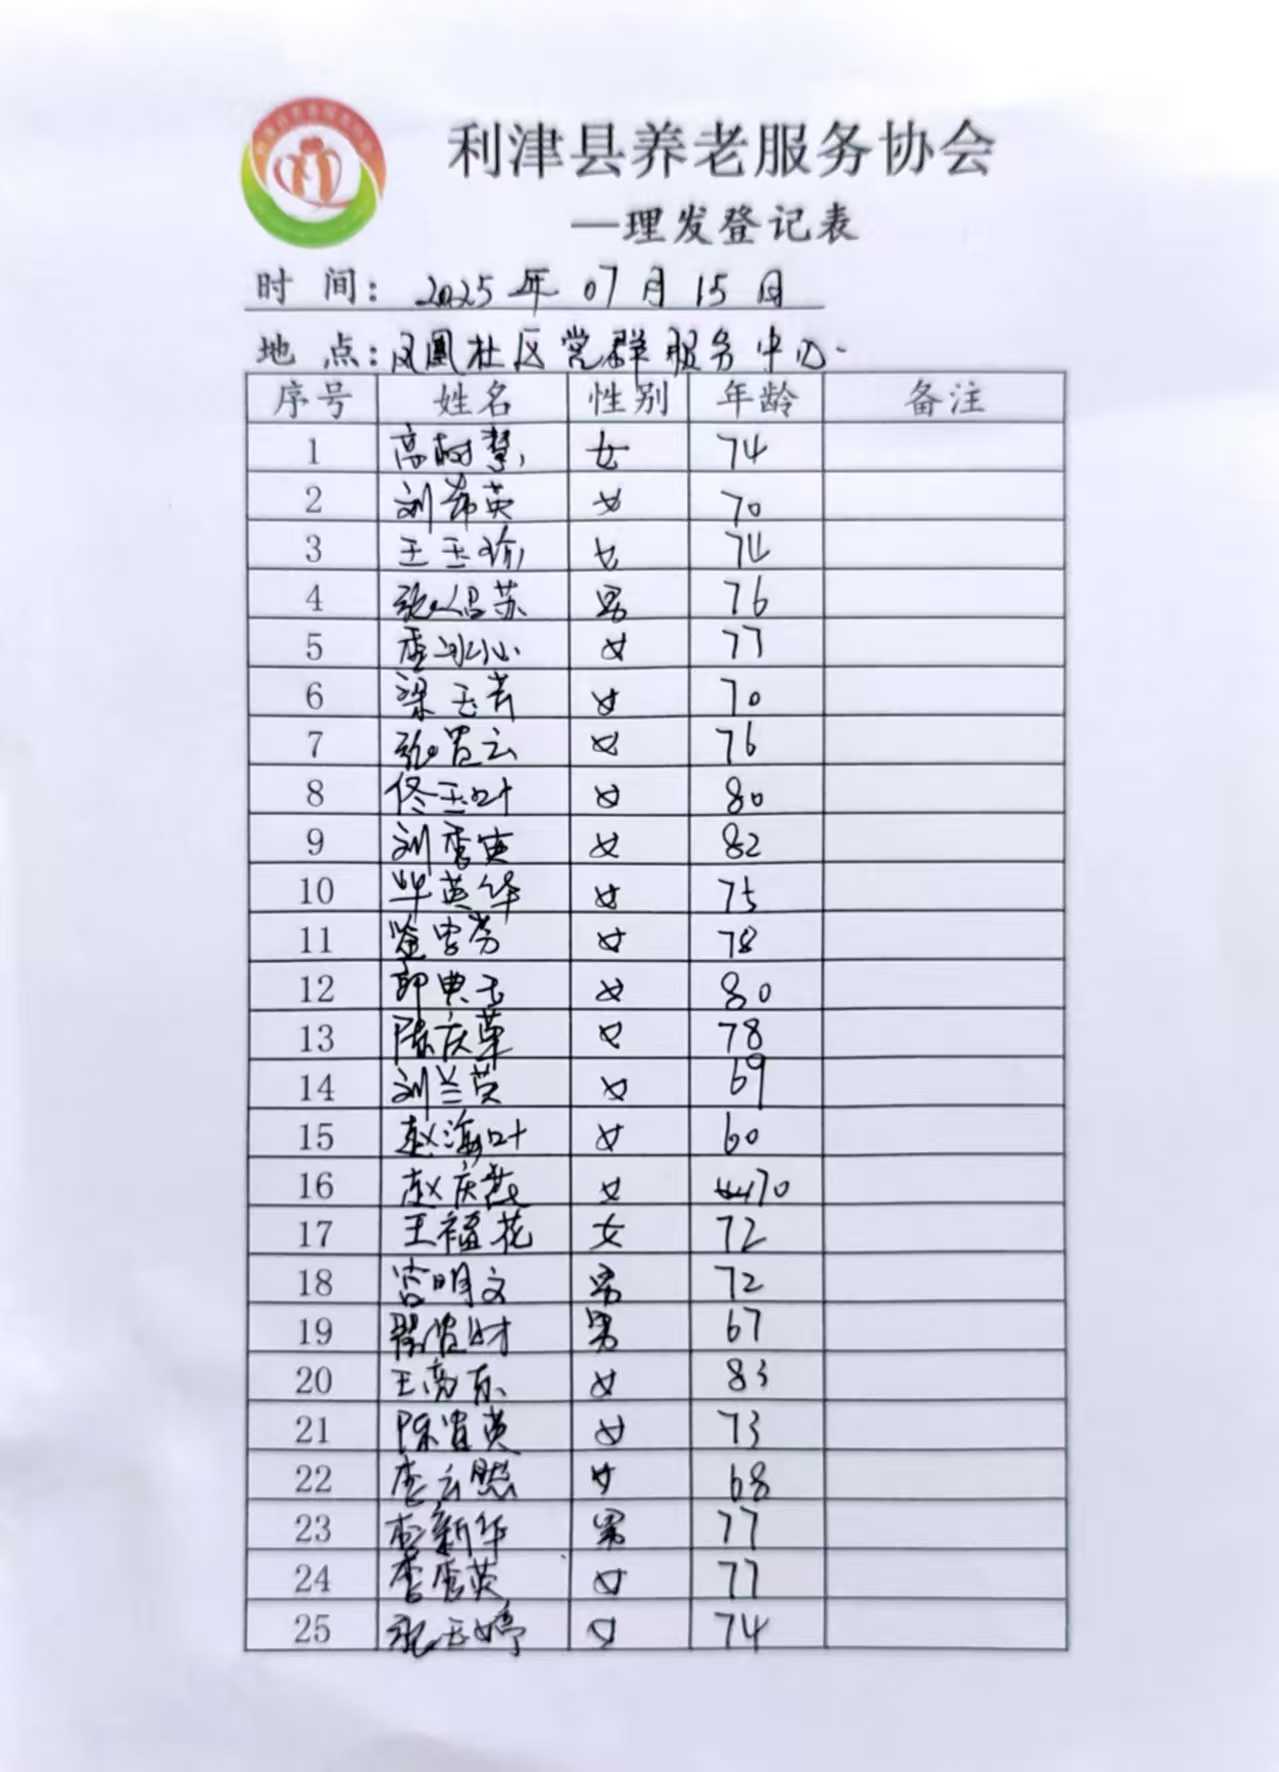 利津县养老服务协会
—理发登记表
时 间: 2025年07月15日
地 点: 凤凰社区党群服务中心.
序号 姓名 性别 年龄 备注
1 高树慧 女 74
2 刘希英 女 70
3 王玉瑜 女 74
4 张人昌苏 男 76
5 李冰心 女 77
6 梁玉芳 女 70
7 张置云 女 76
8 佟玉叶 女 80
9 刘秀英 女 82
10 毕英华 女 75
11 女 78
12 典玉 女 80
13 陈庆革 女 78
14 刘兰英 女 69
15 赵海叶 女 60
16 赵庆燕 女 70
17 王福花 女 72
18 明文 男 72
19 财 男 67
20 王东 女 83
21 陈英 女 73
22 李云 女 68
23 新华 男 77
24 李秀英 女 77
25 张玉婷 女 74